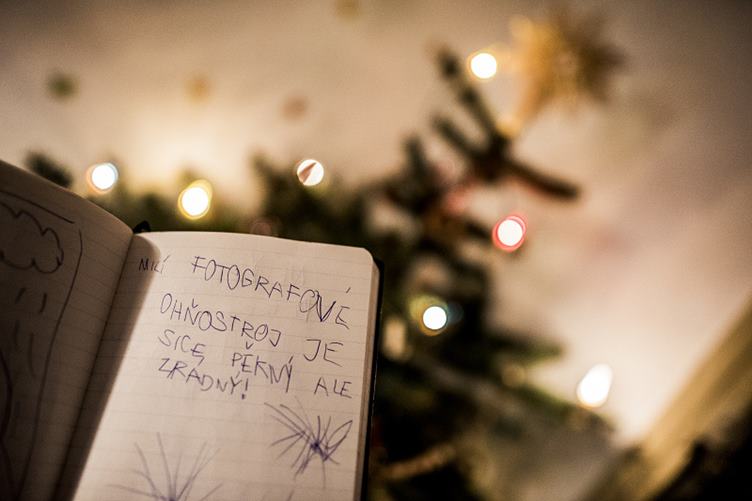 MILÍ FOTOGRAFOVÉ
OHŇOSTROJ JE
SICE PĚKNÝ ALE
ZRADNÝ!